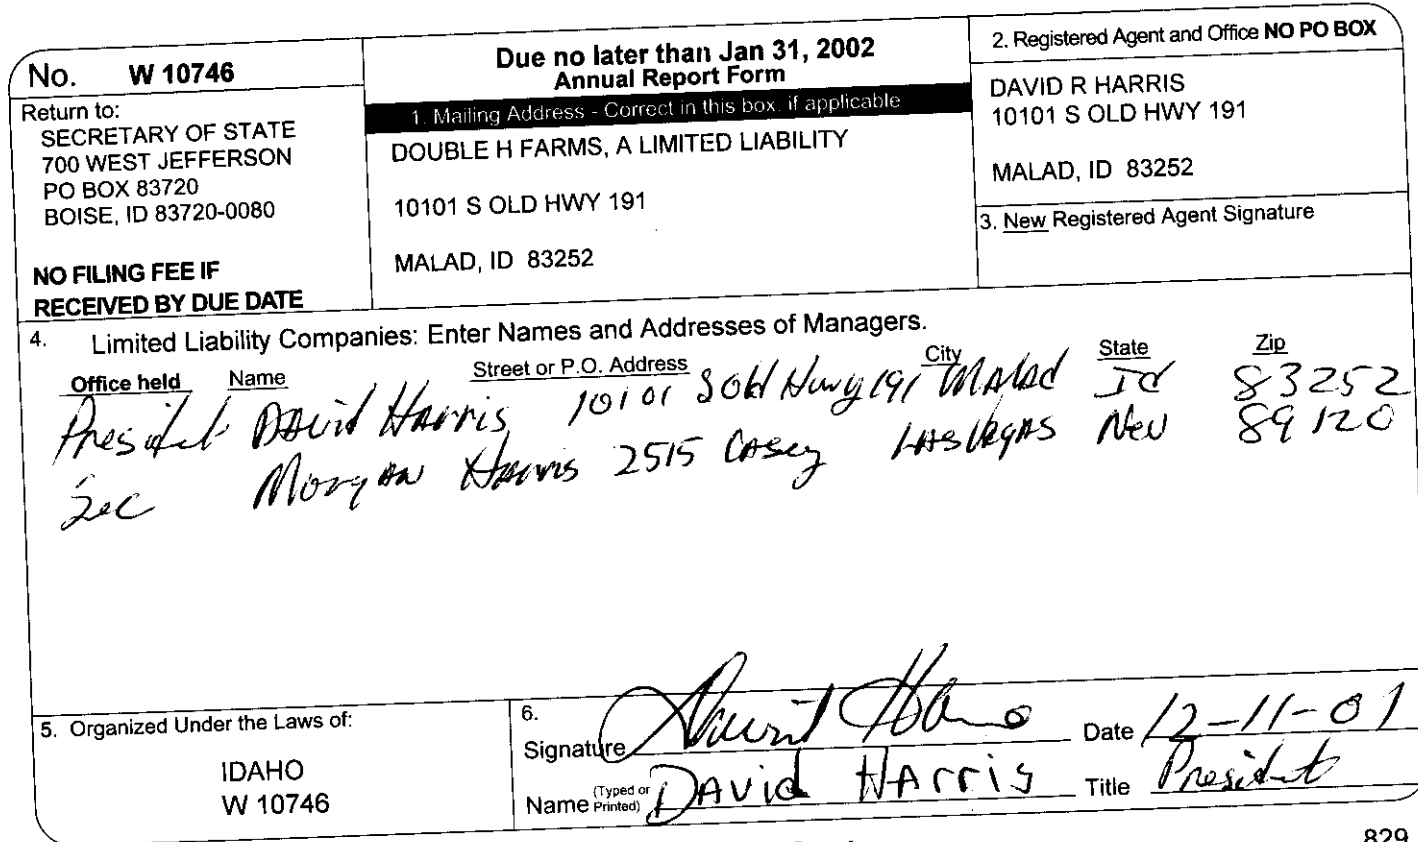 No. W 10746
Return to:
SECRETARY OF STATE
700 WEST JEFFERSON
PO BOX 83720
BOISE, ID 83720-0080
NO FILING FEE IF
RECEIVED BY DUE DATE
Due no later than Jan 31, 2002
Annual Report Form
1. Mailing Address - Correct in this box, if applicable
DOUBLE H FARMS, A LIMITED LIABILITY
10101 S OLD HWY 191
MALAD, ID 83252
2. Registered Agent and Office NO PO BOX
DAVID R HARRIS
10101 S OLD HWY 191
MALAD, ID 83252
3. New Registered Agent Signature
4. Limited Liability Companies: Enter Names and Addresses of Managers.
Office held Name Street or P.O. Address City State Zip
President DAvid HArris 10101 S Old Hwy 191 MAlad Id 83252
Sec MorgAN HArris 2515 CAsey LAS VegAS Nev 89120
5. Organized Under the Laws of:
IDAHO
W 10746
6.
Signature David Harris Date 12-11-01
Name (Typed or Printed) DAvid HArris Title President
829